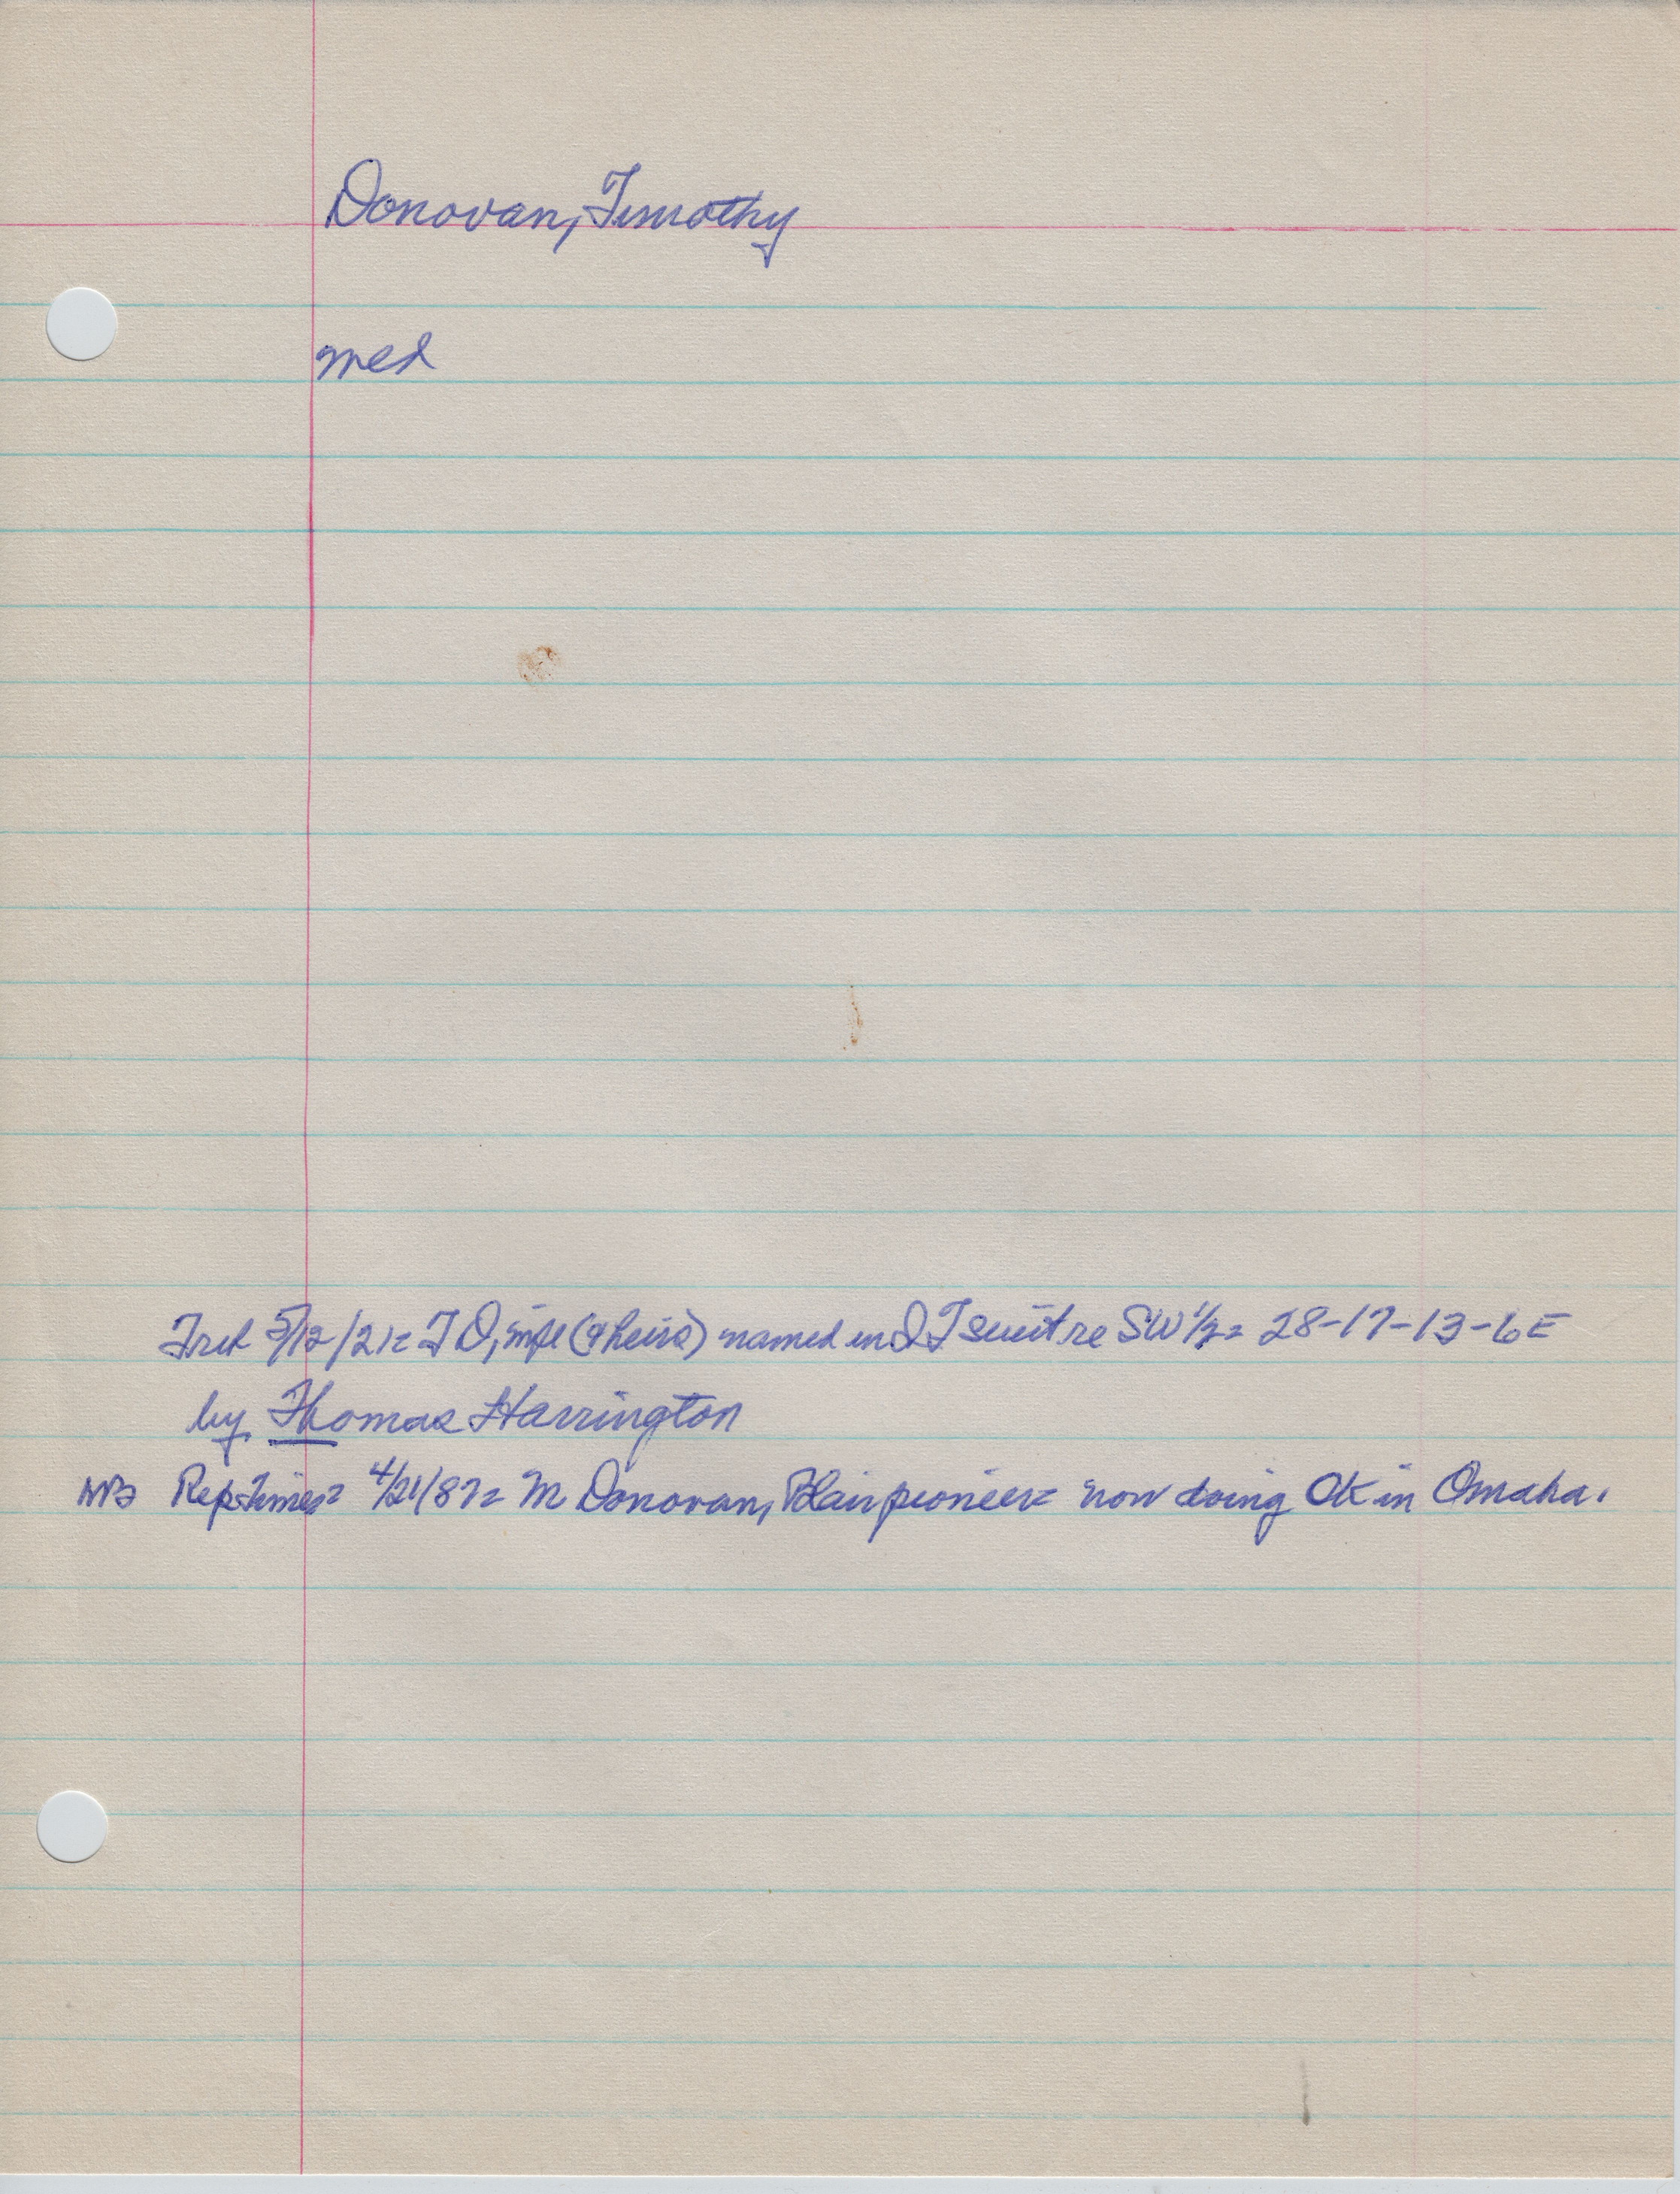 Donovan, Timothy
med
5/12/21= T D, wife (& heirs) named in Q T suit re SW 1/2= 28-17-13-6E
by Thomas Harrington
Rep-Times= 4/21/87= M Donovan, Blair pioneer= now doing OK in Omaha.